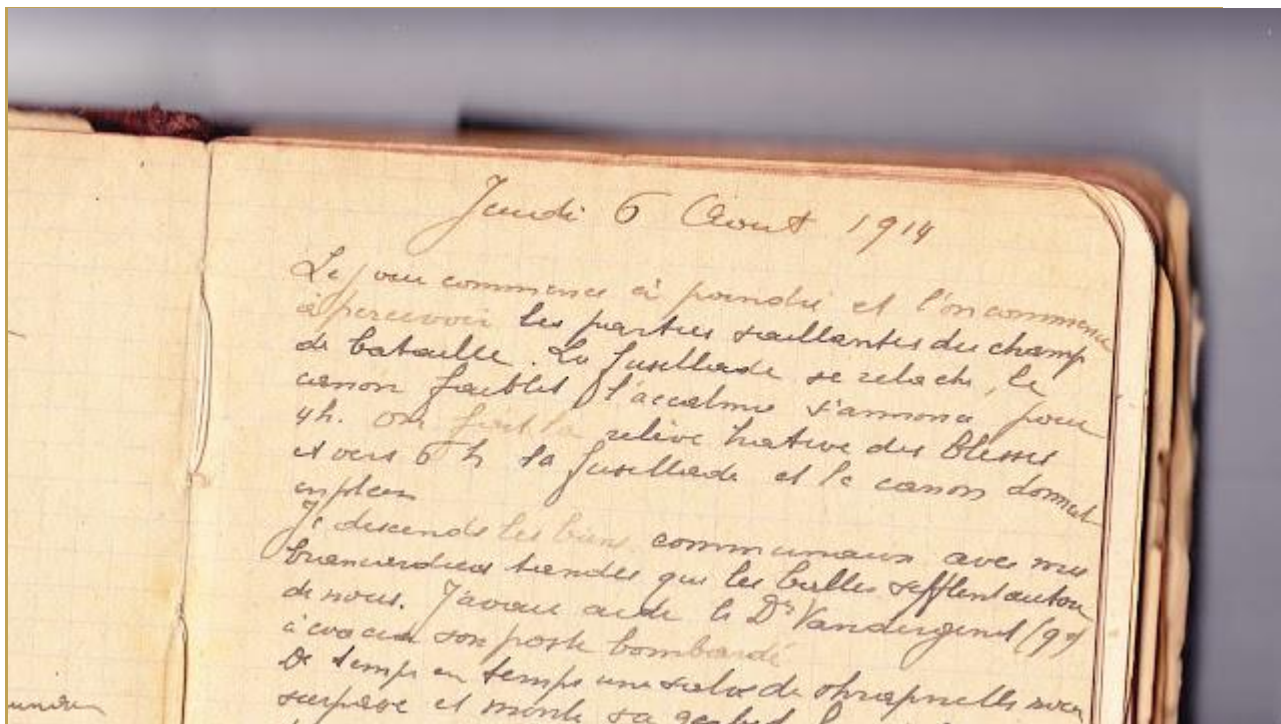 Jeudi 6 Aout 1914
Le jour commence à poindre et l'on commence
à percevoir les parties saillantes du champ
de bataille. La fusillade se relache, le
canon faiblit l'accalmie s'annonce pour
4h. On fait la relève hative des blessés
et vers 6 h la fusillade et le canon donnent
en plein
Je descends les biens communaux avec mes
brancardiers tandis que les balles sifflent autour
de nous. J'avais aidé le Dr
à évacuer son poste bombardé
De temps en temps une salve de shrapnells nous
surpasse et monte sa